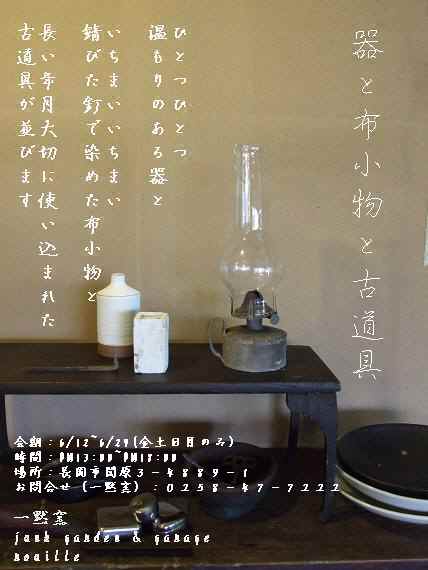 器と布小物と古道具
ひとつひとつ
温もりのある器と
いちまいいちまい
錆びた釘で染めた布小物と
長い年月大切に使い込まれた
古道具が並びます
会期：6/12~6/29(金土日月のみ)
時間：PM13:00~PM18:00
場所：長岡市関原3-4889-1
お問合せ（一黙窯）：0258-47-7222
一黙窯
junk garden & garage
noaille